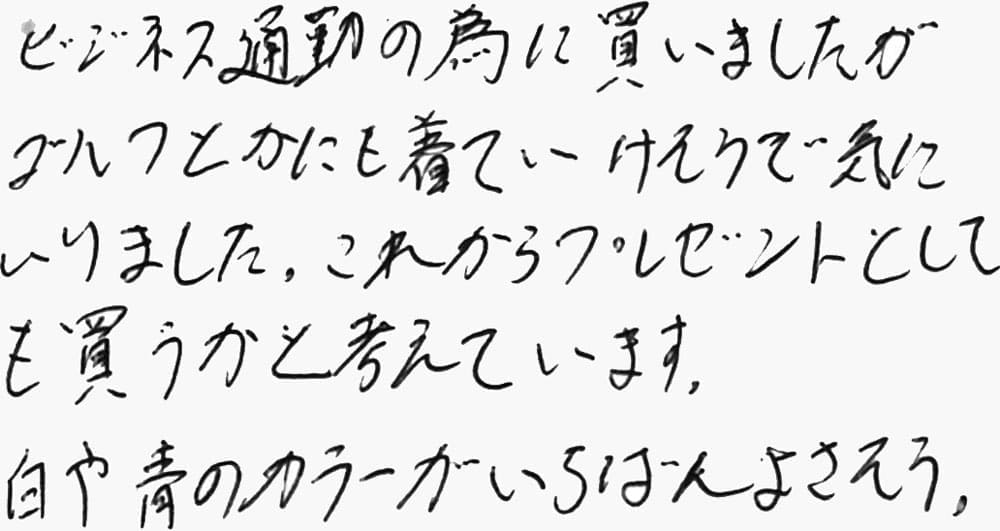 ビジネス通勤の為に買いましたが
ゴルフとかにも着ていけそうで気に
いりました。これからプレゼントとして
も買うかと考えています。
白や青のカラーがいちばんよさそう。